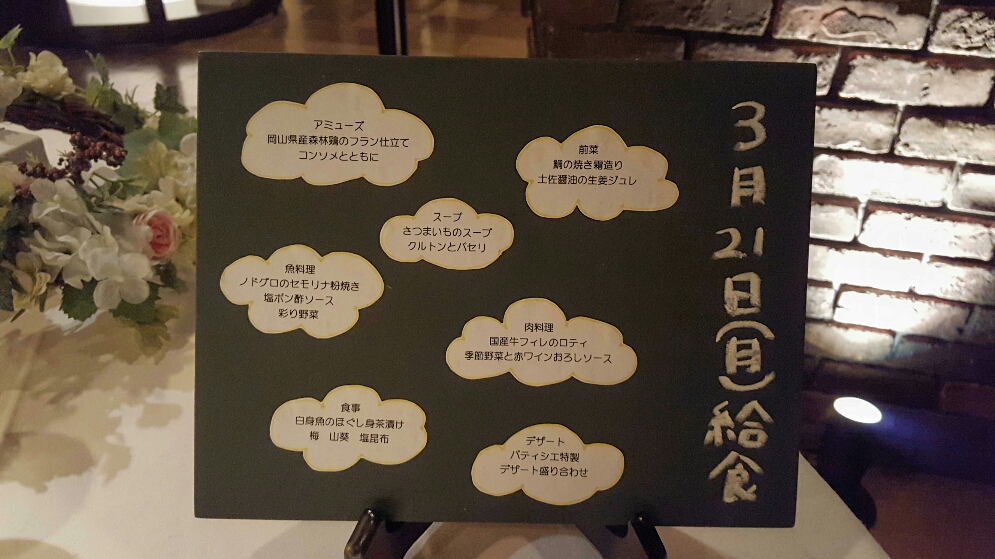 3月21日(月)給食
アミューズ
岡山県産森林鶏のフラン仕立て
コンソメとともに
前菜
鯛の焼き霜造り
土佐醤油の生姜ジュレ
スープ
さつまいものスープ
クルトンとパセリ
魚料理
ノドグロのセモリナ粉焼き
塩ポン酢ソース
彩り野菜
肉料理
国産牛フィレのロティ
季節野菜と赤ワインおろしソース
食事
白身魚のほぐし身茶漬け
梅 山葵 塩昆布
デザート
パティシエ特製
デザート盛り合わせ